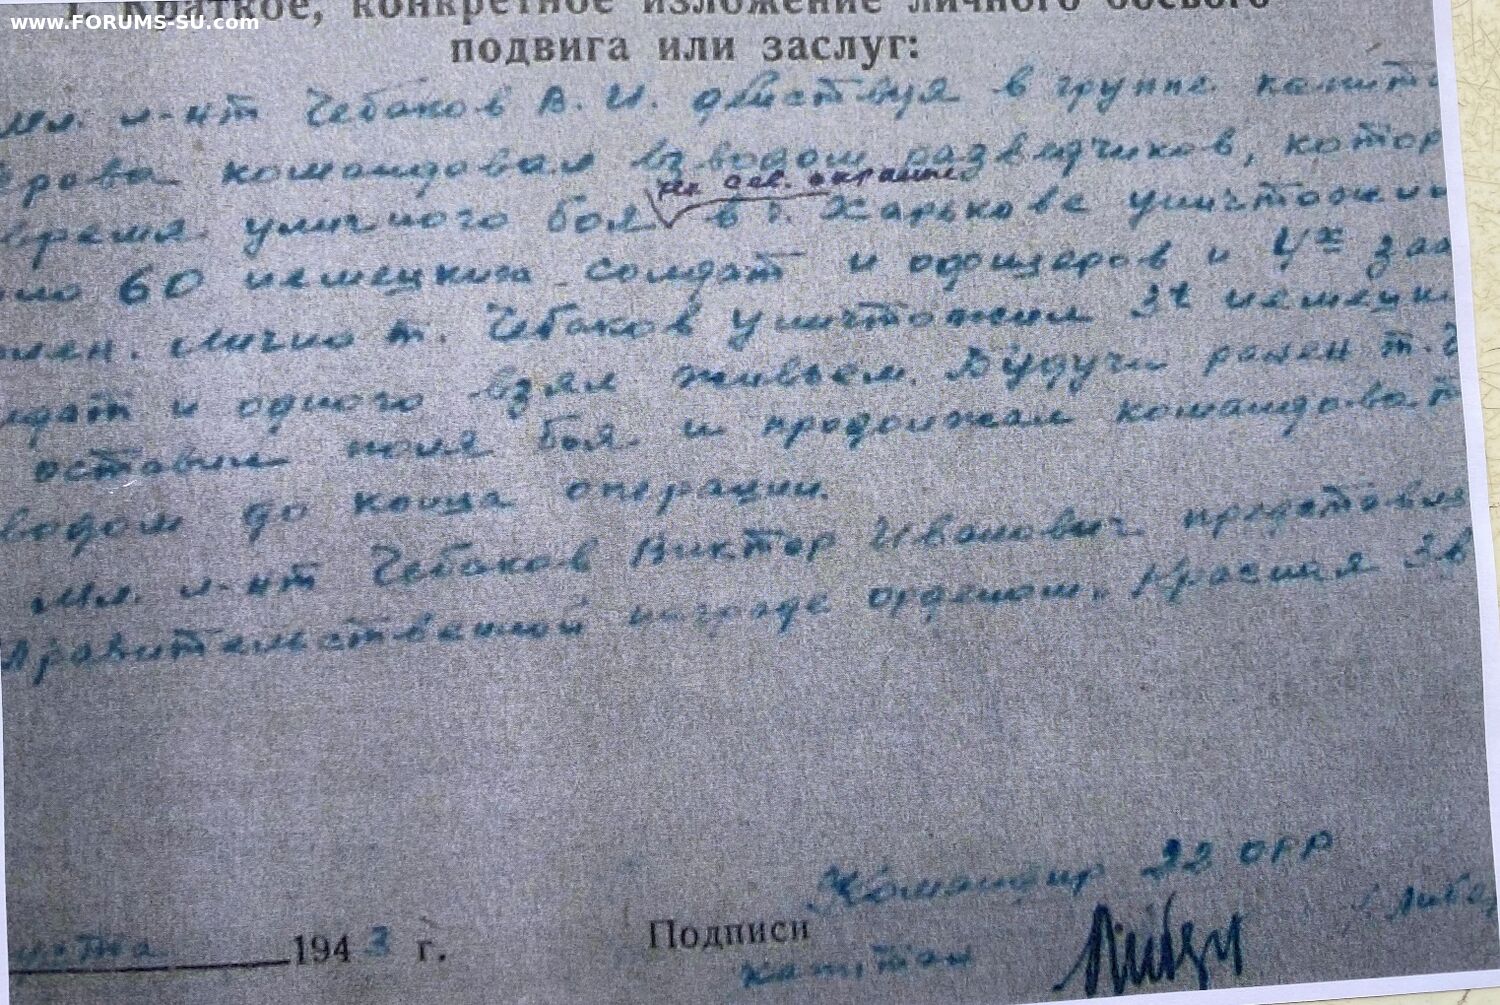 www.FORUMS-SU.com
Краткое, конкретное изложение личного боевого
подвига или заслуг:
Мл. л-нт Чебаков В. И. действуя в группе капита
рова командовал взводом разведчиков, котор
на сев. окраине
время уличного боя в г. Харькове уничтожил
60 немецких солдат и офицеров и 4х
Лично т. Чебаков уничтожил 3х немецки
лдат и одного взял живьем. Будучи ранен т. Ч
оставил поля боя и продолжал командоват
водом до конца операции.
Мл. л-нт Чебаков Виктор Иванович представля
Правительственной награде орденом "Красная Зв
Командир 22 ОРР
марта 1943 г. Подписи
капитан